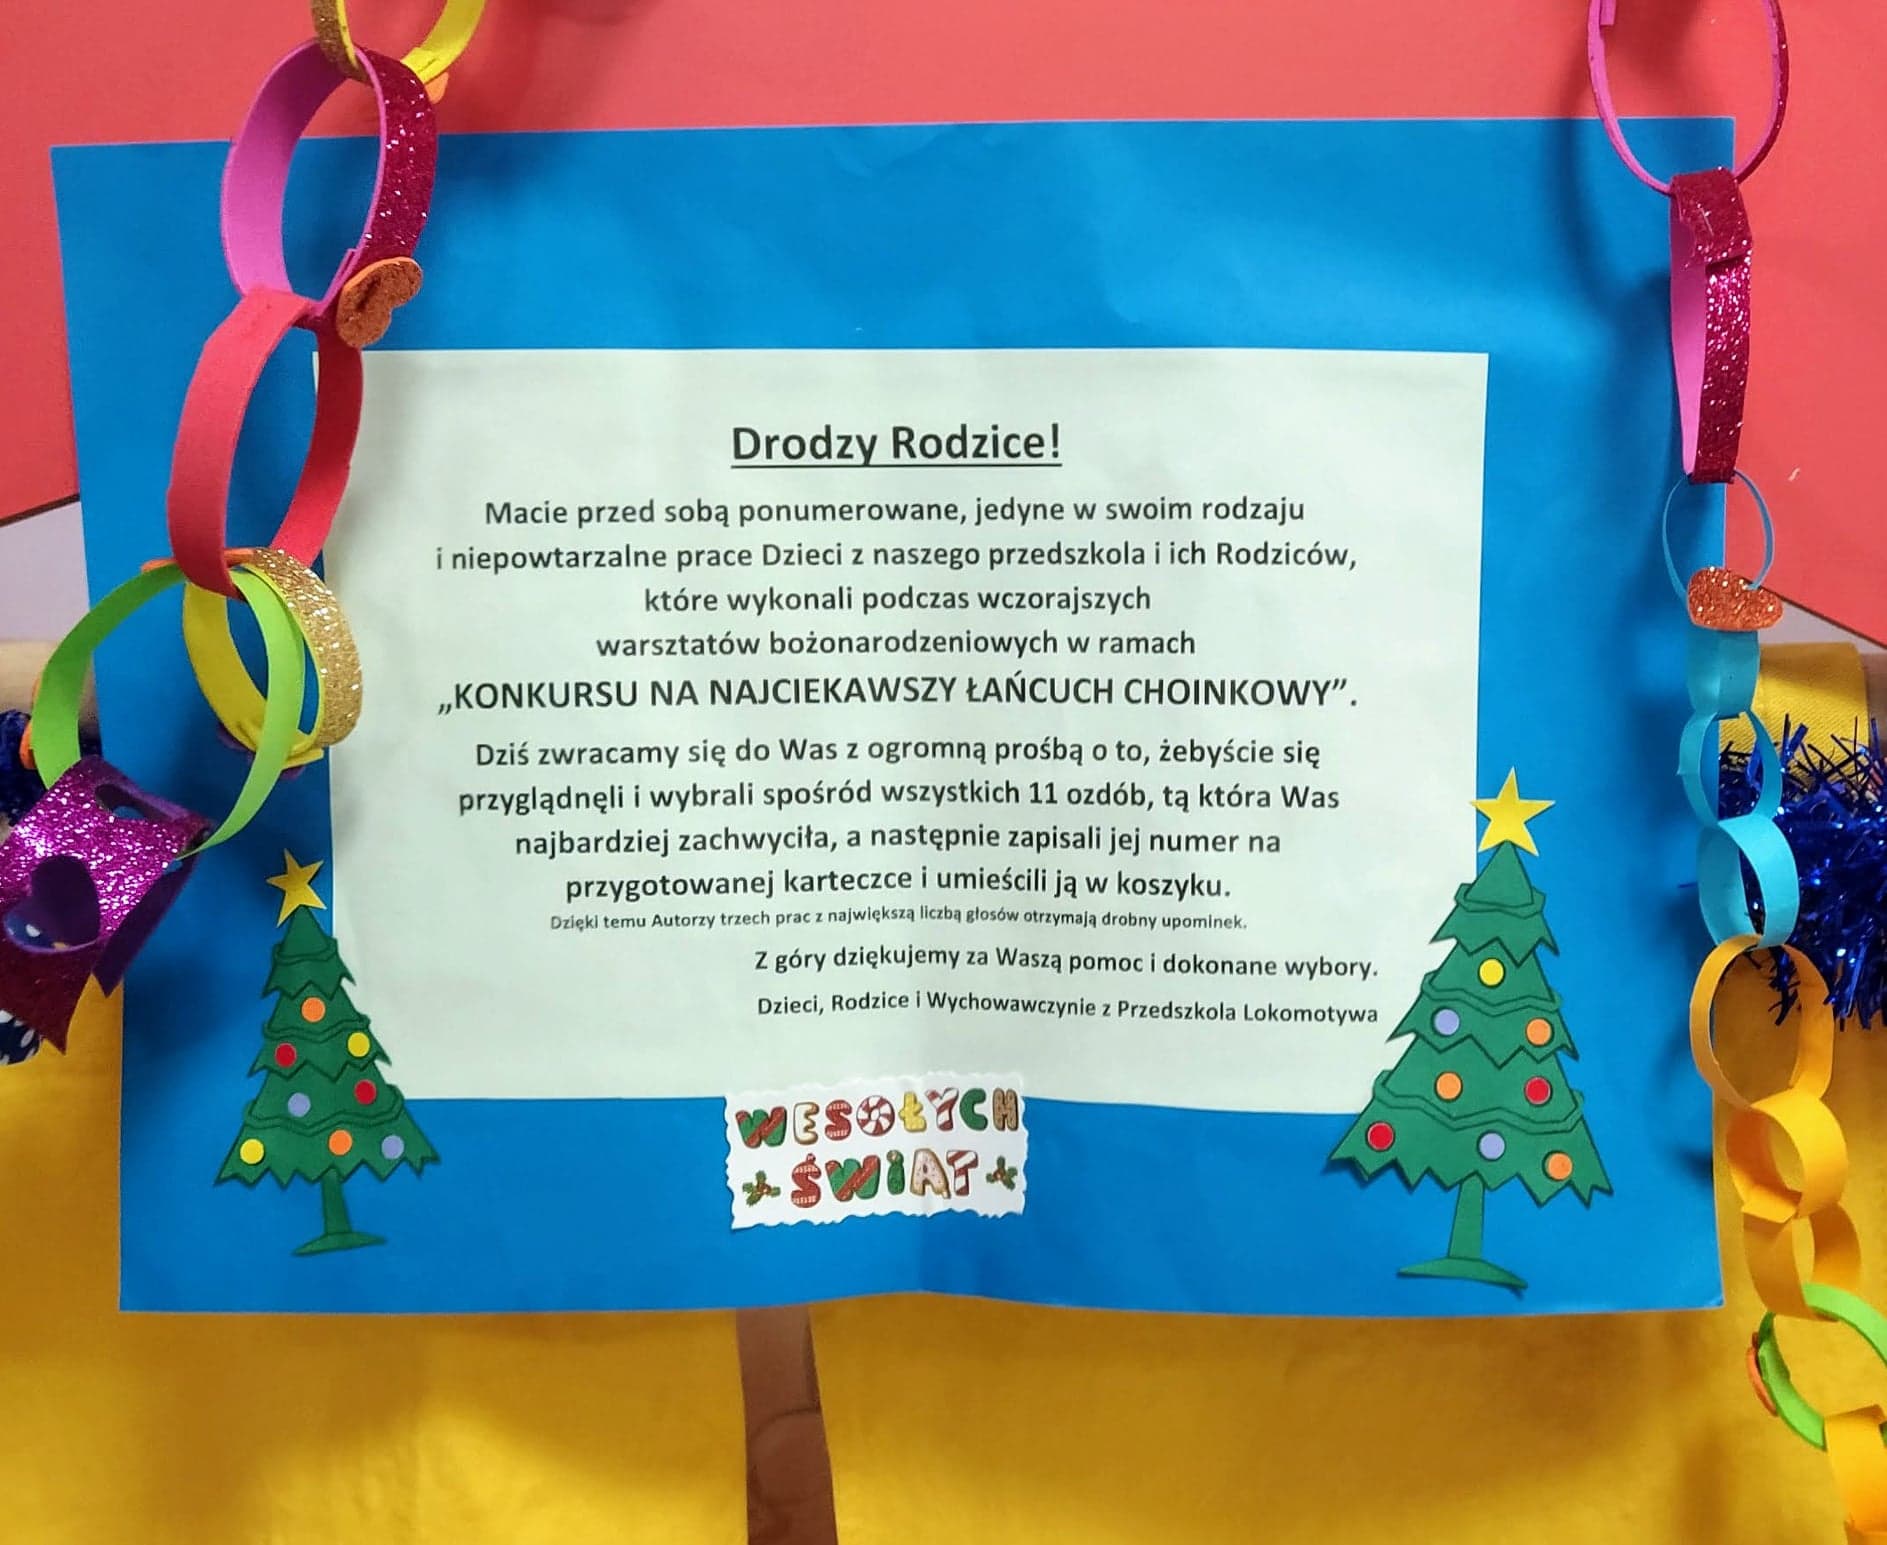 Drodzy Rodzice!
Macie przed sobą ponumerowane, jedyne w swoim rodzaju
i niepowtarzalne prace Dzieci z naszego przedszkola i ich Rodziców,
które wykonali podczas wczorajszych
warsztatów bożonarodzeniowych w ramach
„KONKURSU NA NAJCIEKAWSZY ŁAŃCUCH CHOINKOWY”.
Dziś zwracamy się do Was z ogromną prośbą o to, żebyście się
przyglądnęli i wybrali spośród wszystkich 11 ozdób, tą która Was
najbardziej zachwyciła, a następnie zapisali jej numer na
przygotowanej karteczce i umieścili ją w koszyku.
Dzięki temu Autorzy trzech prac z największą liczbą głosów otrzymają drobny upominek.
Z góry dziękujemy za Waszą pomoc i dokonane wybory.
Dzieci, Rodzice i Wychowawczynie z Przedszkola Lokomotywa
WESOŁYCH
ŚWIĄT